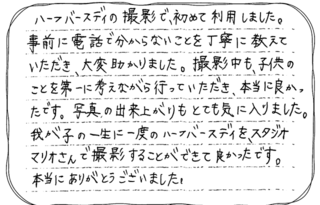 ハーフバースディの撮影で、初めて利用しました。
事前に電話で分からないことを丁寧に教えて
いただき、大変助かりました。撮影中も、子供の
ことを第一に考えながら行っていただき、本当に良かっ
たです。写真の出来上がりもとても気に入りました。
我が子の一生に一度のハーフバースディを、スタジオ
マリオさんで撮影することができて良かったです。
本当にありがとうございました。